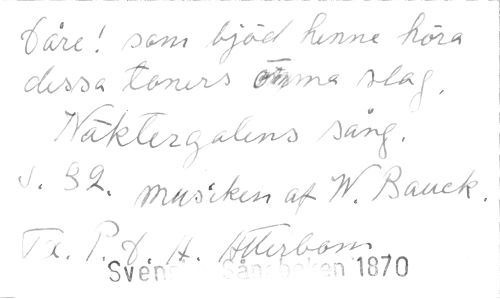 Dåre! som bjöd henne höra
dessa toners ömma slag.
Näktergalens sång.
s. 32. musiken af W. Bauck.
Tx. P. D. A. Atterbom
Svenska Sångboken 1870